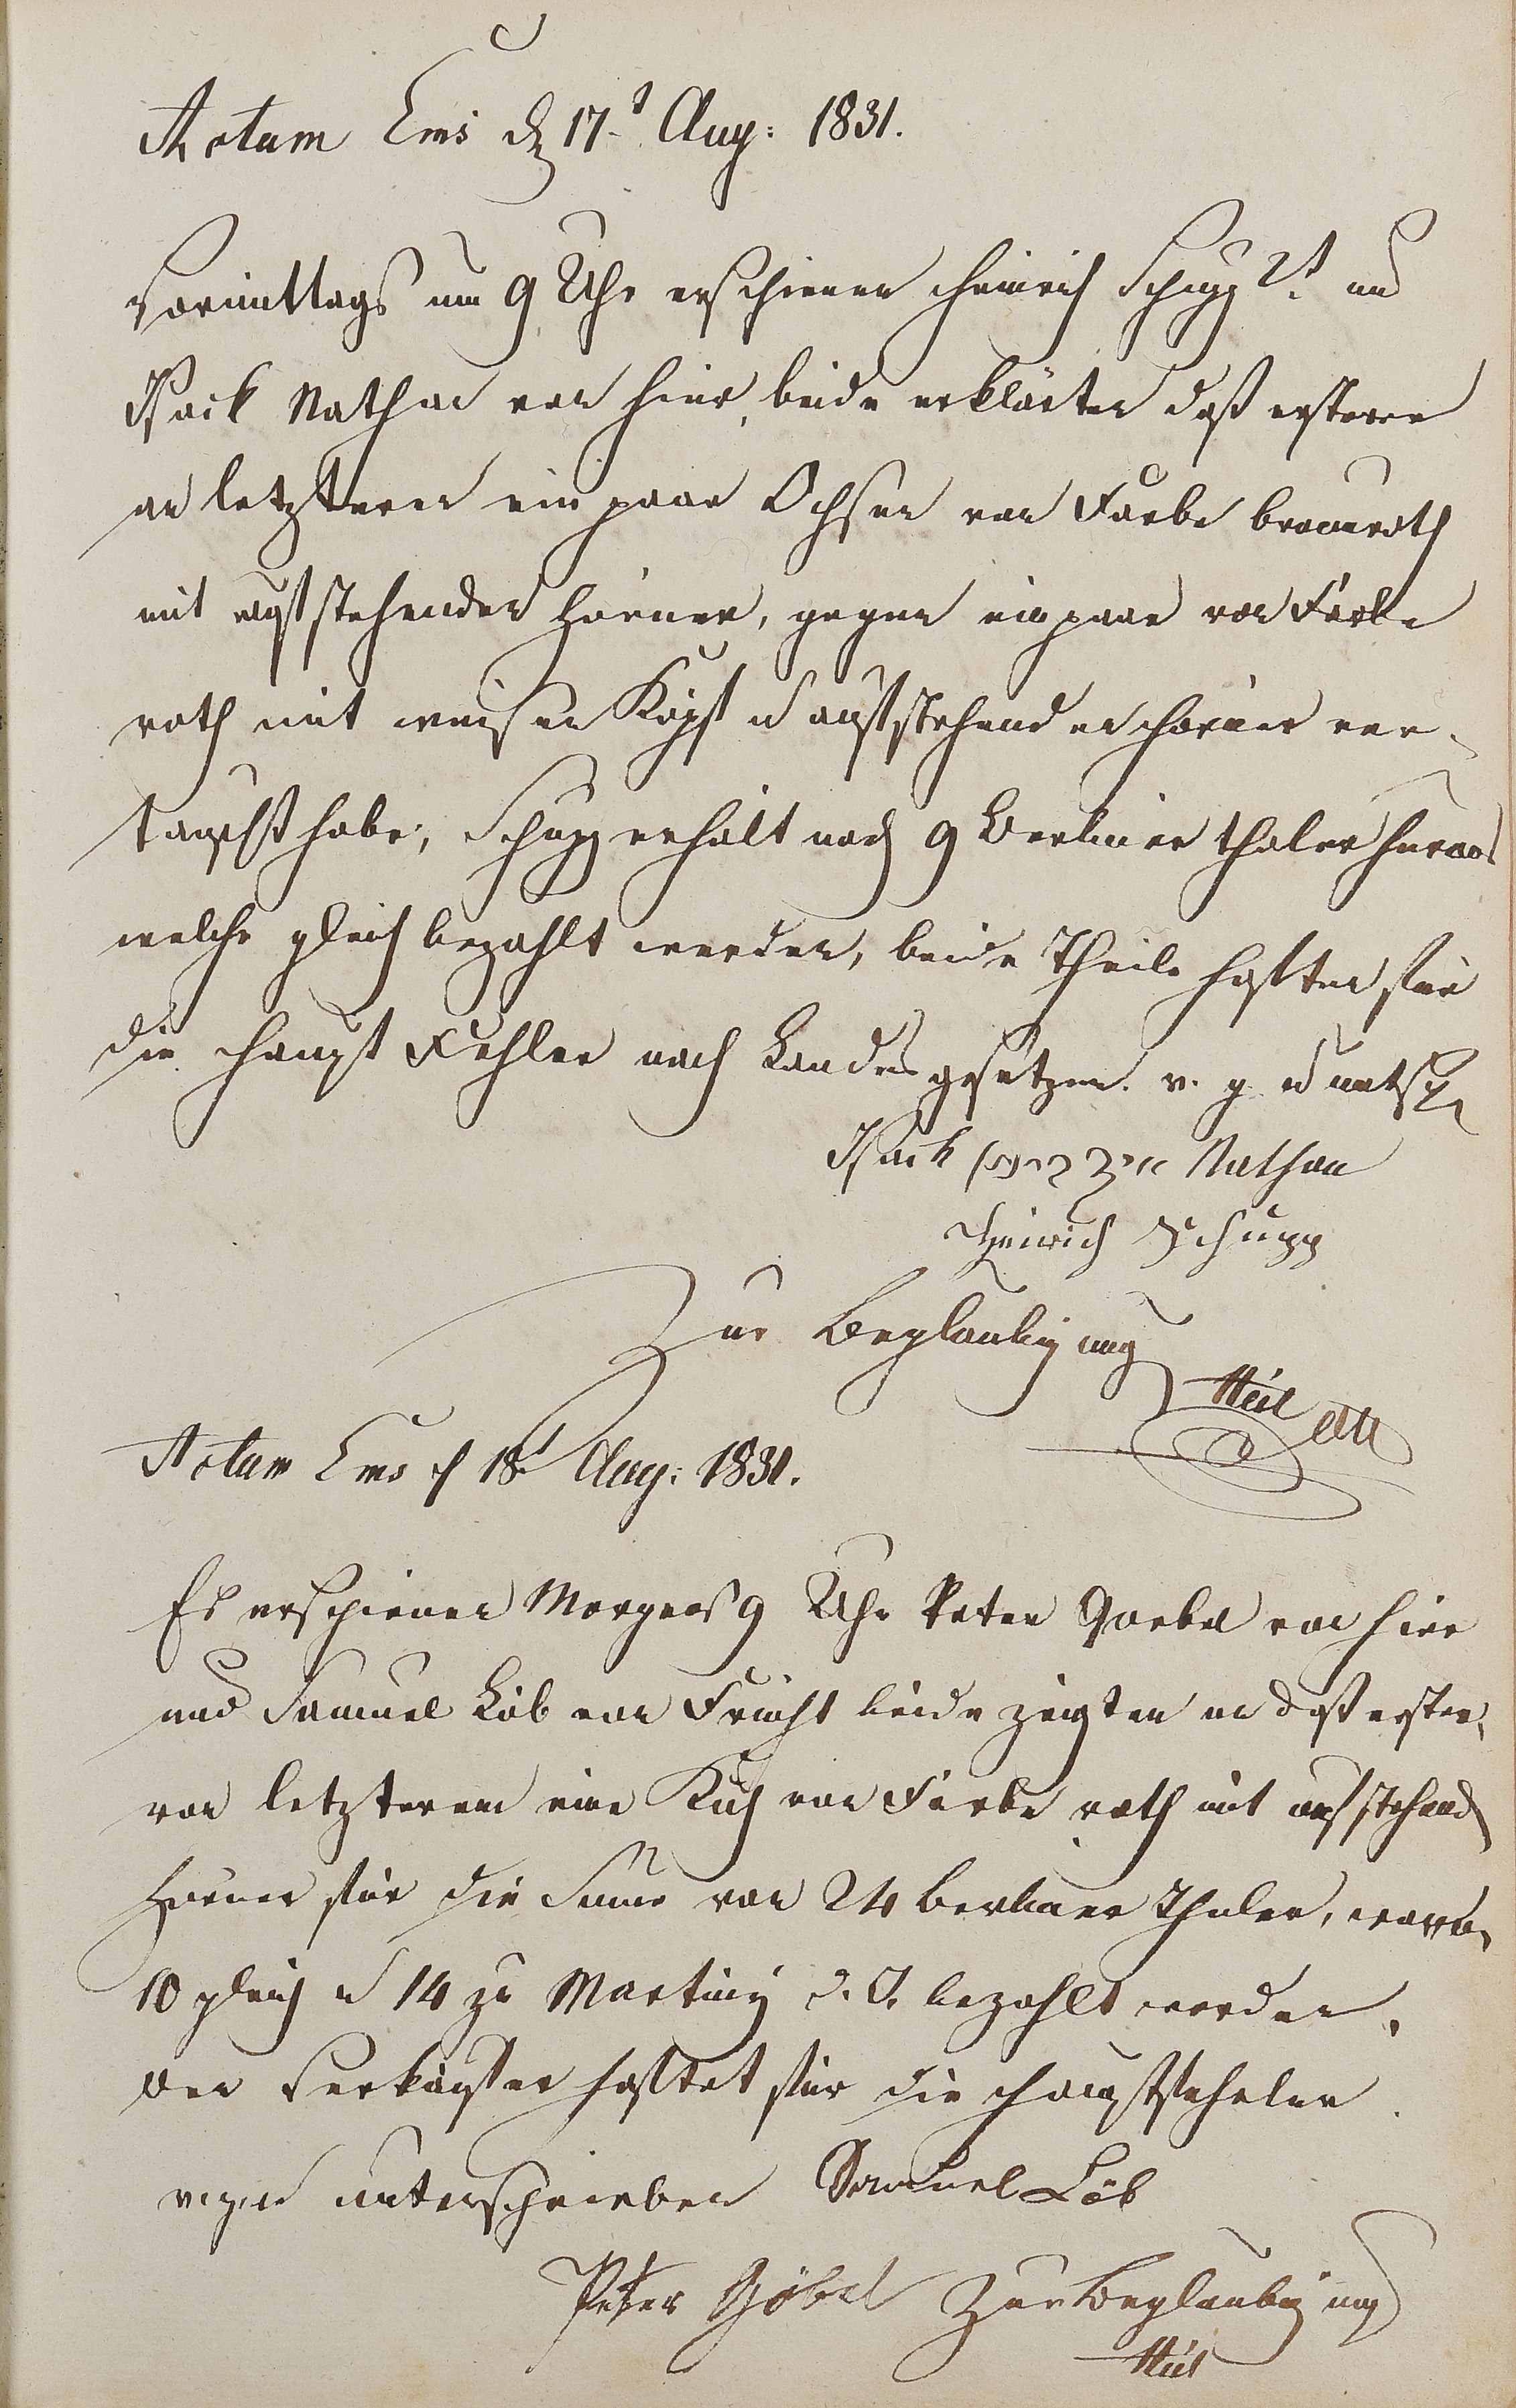 Actum Ems d 17t Aug: 1831.
Vormittags um 9 Uhr erschienen Heinrich Schupp 2t und
Isack Nathan von hier, beide erklärten daß ersterer
an letzteren ein paar Ochsen von Farbe braunroth
mit aufstehenden Hörner, gegen ein paar von Farbe
roth mit weisen Köpf u aufstehenden Hörner ver-
tauscht habe, Schupp erhält noch 9 Berliner thaler heraus
welche gleich bezahlt werden, beide Theile haften für
die Haupt Fehler nach Landesgesetzen. v. g. u untsch
Isack Nathan
Heinrich Schupp
Zur Beglaubigung
Actum Ems d 18t Aug: 1831.
Es erschienen Morgens 9 Uhr Peter Goebel von hier
und Samuel Löb von Frücht beide zeigten an daß erster,
von letzterem eine Kuh von Farbe roth mit aufstehend
Hörner für die Sume von 24 Berliner Thaler, wovon
10 gleich u 14 zu Martiny d. J. bezahlt werden,
der Verkäufer haftet für die Hauptfehler.
v. g. u unterschrieben Samuel Löb
Peter Göbel Zur Beglaubigung